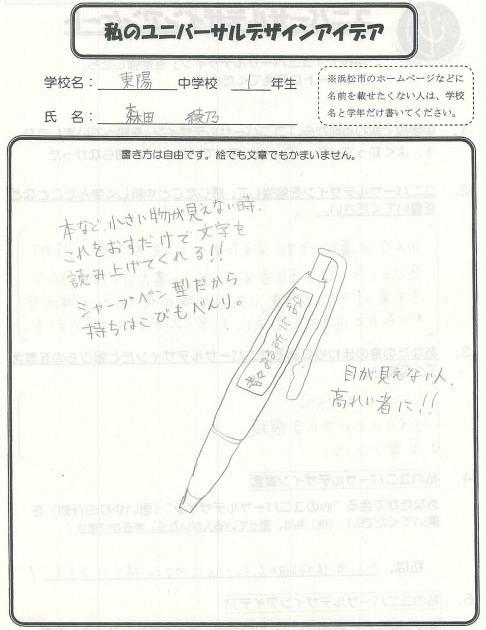 私のユニバーサルデザインアイデア
学校名： 東陽 中学校 1 年生
氏　名： 森田 綾乃
※浜松市のホームページなどに
名前を載せたくない人は、学校
名と学年だけ書いてください。
書き方は自由です。絵でも文章でもかまいません。
本など、小さい物が見えない時、
これをおすだけで文字を
読み上げてくれる!!
シャープペン型だから
持ちはこびもべんり。
目が見えない人、
高れい者に!!